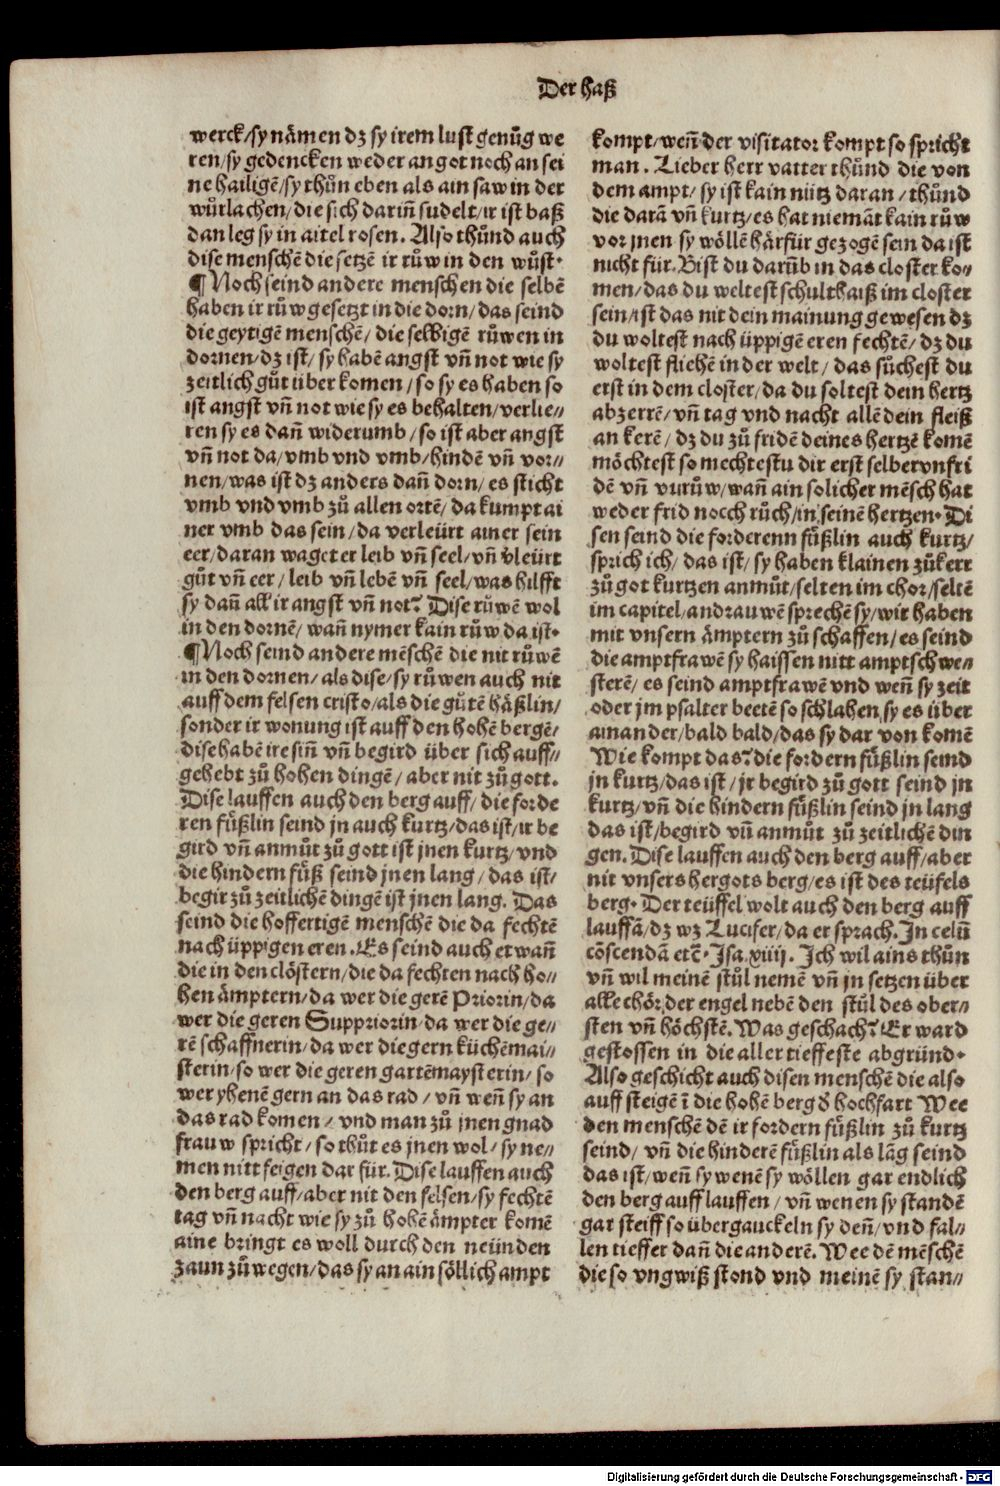 Der haß
werck/sy nämen dz sy irem lust genůg we
ren/sy gedencken weder an got noch an sei
ne hailigē/sy thůn eben als ain saw in der
wůrlachen/die sich dariñ sudelt/ir ist baß
dan leg sy in aitel rosen. Also thůnd auch
dise menschē die setzē ir růw in den wůst.
¶Noch seind andere menschen die selbē
haben ir růw gesetzt in die dorn/das seind
die geytigē menschē/die selbigē růwen in
dornen/dz ist/sy habē angst vñ not wie sy
zeitlich gůt über komen/so sy es haben so
ist angst vñ not wie sy es behalten/verlie⸗
ren sy es dañ widerumb/so ist aber angst
vñ not da/vmb vnd vmb/hindē vñ vor⸗
nen/was ist dz anders dañ dorn/es sticht
vmb vnd vmb zů allen ortē/da kumpt ai
ner vmb das sein/da verleürt ainer sein
eer/daran waget er leib vñ seel/vñ v̄leürt
gůt vñ eer/leib vñ lebē vñ seel/was hilfft
sy dañ all ir angst vñ not? Dise růwē wol
in den dornē/wañ nymer kain růw da ist.
¶Noch seind andere mēschē die nit růwē
in den dornen/als dise/sy růwen auch nit
auff dem felsen cristo/als die gůtē häßlin/
sonder ir wonung ist auff den hohē bergē/
dise habē ire siñ vñ begird über sich auff⸗
gehebt zů hohen dingē/aber nit zů gott.
Dise lauffen auch den berg auff/die forde
ren füßlin seind jn auch kurtz/das ist/ir be
gird vñ anmůt zů gott ist jnen kurtz/vnd
die hindern füß seind jnen lang/das ist/
begir zů zeitlichē dingē ist jnen lang. Das
seind die hoffertigē menschē die da fechtē
nach üppigen eren. Es seind auch etwañ
die in den clöstern/die da fechten nach ho⸗
hen ämptern/da wer die gerē Priorin/da
wer die geren Suppriorin/da wer die ge⸗
rē schaffnerin/da wer die gern küchēmai⸗
sterin/so wer die geren gartēmaysterin/so
wer yhenē gern an das rad/vñ weñ sy an
das rad komen/vnd man zů jnen gnad
fraw spricht/so thůt es jnen wol/sy ne⸗
men nitt feigen dar für. Dise lauffen auch
den berg auff/aber nit den felsen/sy fechtē
tag vñ nacht wie sy zů hohē ämpter komē
aine bringt es woll durch den neünden
zaun zů wegen/das sy an ain söllich ampt
kompt/weñ der visitator kompt so spricht
man. Lieber herr vatter thůnd die von
dem ampt/sy ist kain nütz daran/thůnd
die darā vñ kurtz/es hat niemāt kain růw
vor jnen sy wöllē härfür gezogē sein da ist
nicht für. Bist du darūb in das closter ko⸗
men/das du weltest schulthaiß im closter
sein/ist das nit dein mainung gewesen dz
du woltest nach üppigē eren fechtē/dz du
woltest fliehē in der welt/das sůchest du
erst in dem closter/da du soltest dein hertz
abzerrē/vñ tag vnd nacht allē dein fleiß
an kerē/dz du zů fridē deines hertzē komē
möchtest so mechtestu dir erst selber vnfri
dē vñ vnrůw/wañ ain solicher mēsch hat
weder frid nocch růch/in seinē hertzen. Di
sen seind die forderenn füßlin auch kurtz/
sprich ich/das ist/sy haben klainen zůkerr
zů got kurtzen anmůt/selten im chor/seltē
im capitel/andrauwē sprechē sy/wir haben
mit vnsern ämptern zů schaffen/es seind
die amptfrawē sy haissen nitt amptschwe⸗
sterē/es seind amptfrawē vnd weñ sy zeit
oder jm psalter beetē so schlahen sy es über
ainander/bald bald/das sy dar von komē
Wie kompt das? die fordern füßlin seind
jn kurtz/das ist/jr begird zů gott seind jn
kurtz/vñ die hindern füßlin seind jn lang
das ist/begird vñ anmůt zů zeitlichē din
gen. Dise lauffen auch den berg auff/aber
nit vnsers hergots berg/es ist des teüfels
berg. Der teüffel wolt auch den berg auff
lauffā/dz wz Lucifer/da er sprach. In celū
cōscendā etc̄. Isa. xiiij. Ich wil ains thůn
vñ wil meinē stůl nemē vñ jn setzen über
alle chör/der engel nebē den stůl des ober⸗
sten vñ höchstē. Was geschach? Er ward
gestossen in die aller tieffeste abgründ.
Also geschicht auch disen menschē die also
auff steigē ī die hohē berg ď hochfart Wee
den menschē dē ir fordern füßlin zů kurtz
seind/vñ die hinderē füßlin als lāg seind
das ist/weñ sy wenē sy wöllen gar endlich
den berg auff lauffen/vñ wenen sy standē
gar steiff so übergauckeln sy deñ/vnd fal⸗
len tieffer dañ die anderē. Wee dē mēschē
die so vngwiß stond vnd meinē sy stan⸗
Digitalisierung gefördert durch die Deutsche Forschungsgemeinschaft - DFG